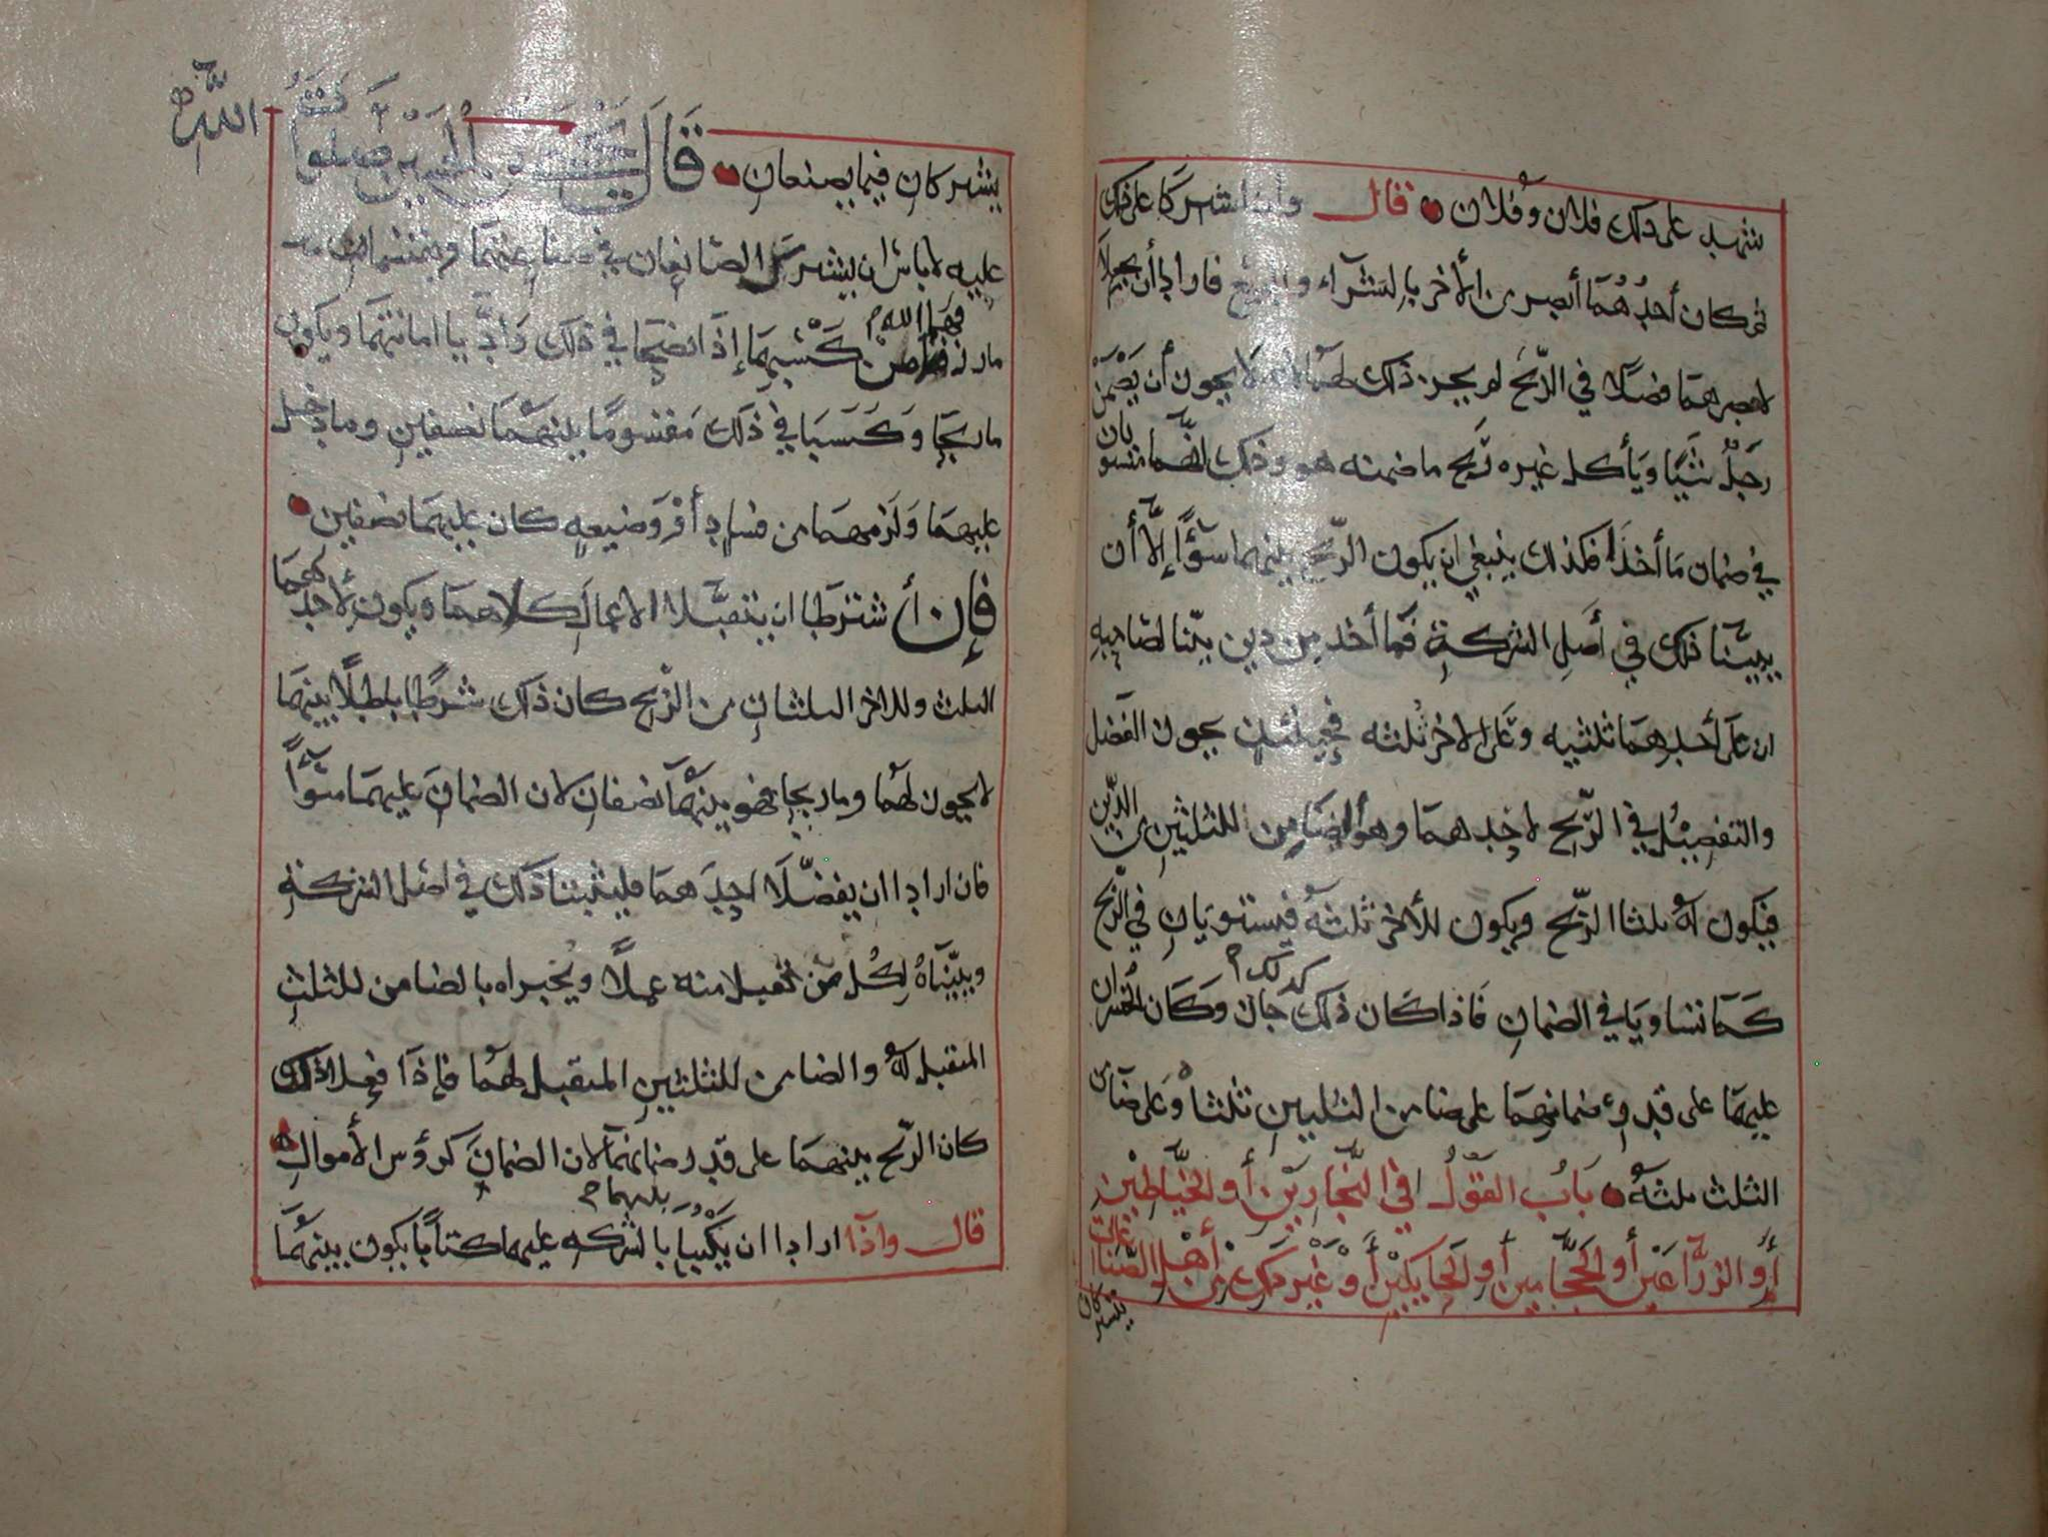 شهد على ذلك فلان وفلان قال وإذا اشتركا على ذلك
ثم كان أحدُهُما أبصر من الأخر بالشرآء والبيع فارادا أن يجعلا
لابصرهما فضلًا في الرّبح لم يجز ذلك لهما لانه لا يجوز أن يَضْمَنَ
رَجلٌ شيًا ويأكل غيره رَبح ما ضمنه هو وذلك انهما مستويان
في ضمان مَا أخذَا فكذلك ينبغي ان يكون الربح بينهما سوًآ إلّا أن
يبيّنا ذلك في أصلِ الشركةِ فما أخذ من دين بيّنا لصاحبهِ
ان على أحدهما ثلثيه وعَلى الاخر ثُلثه فحينئذٍ يجوز الفضل
والتفصيل في الرّبح لاحدهما وهو الضامن للثلثين من الدّين
فيكون لهُ ثلثا الرّبح ويكون للأخر ثلثهُ فيستويان في الرّبح
كَما تساويا في الضمانِ فَاذا كَان ذلك كذلك جازَ وكَان الخُسران
عليهما على قدر ضمانهما على ضامن الثلثين ثلثاه وعَلى ضامن
الثلث ثلثهُ بَابُ القولُ في النّجارين أو الخيّاطين
أو الزرّاعين أو الحجّامين أو الحايكين أو غير ذلك من أهل الصّناعات
يشتركان
يشتركانِ فيما يصنعانِ قَالَ يَحيَى بن الحسين صَلواتُ اللّه
عليه لا باس ان يشترك الصّانعان في صناعتهما ويقتسمان
ما رزقهما اللهم من كَسْبِهِمَا إذَا نصَحا في ذلك وَادّيا امانتهما ويكون
ما ربحَا وَكَسَبَا في ذلك مَقسومًا بينهمَا نصفين وما دخل
عليهمَا وَلزمهمَا من فسادٍ أو وَضيعهٍ كان عليهمَا نصفين
فإن أشترطا ان يتقبّلا الاعمالَ كلاهما ويكون لأحدهمَا
الثلث وللاخر الثلثانِ من الرّبح كان ذلك شرطًا باطلًا بينهمَا
لا يجوز لهُما وما ربحا فهو بينهمَا نصفانِ لان الضمانَ عليهما سَوآً
فان ارادا ان يفضّلَا احدَهمَا فليثبتا ذلك في اصْل الشركةِ
ويبيّناهُ لِكُل من تقبلا منه عملًا ويُخبراه بالضامن للثلثِ
المتقبل لهُ والضامن للثلثينِ المتقبل لهُما فإذا فعلا ذلك
كان الرّبح بينهمَا على قدر ضمانهما لان الضمانَ كرؤس الأموالِ
قال واذا ارادا ان يَكْتُبَا بالشركه عليهما كتابًا يكون بينهُمَا